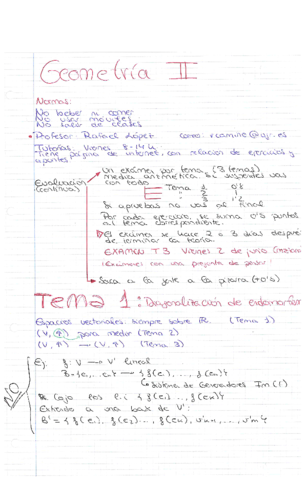 Geometría II
Normas:
No beber ni comer
No usar móviles
No salir de clases
Profesor: Rafael López correo: rcamino@ugr.es
Tutorías: Viernes 8-14h
Tiene página de internet, con relación de ejercicios y apuntes
Evaluación (continua)
Un examen por tema (3 temas)
media aritmética si sacados vas con todo
Tema 1 0'8
2
3
Si apruebas no vas al final
Por cada ejercicio, se suma 0'5 puntos al tema correspondiente.
El examen se hace 2 o 3 días después de terminar la teoría.
EXAMEN T3 Viernes 2 de junio
con una pregunta de
Saca a la gente a la pizarra (+0'5)
Tema 1: Diagonalización de endomorfismos
Espacios vectoriales siempre sobre ℝ. (Tema 1)
(V, Φ) para medir (Tema 2)
(V, Φ) → (V, Φ) (Tema 3)
NO
Ej f: V → V' lineal
B={e1,...en} → {f(e1), ..., f(en)}
↳ Sistema de Generadores Im(f)
Cojo los l.i {f(e1) ... f(ek)}
Extiendo a una base de V':
B' = {f(e1), f(e2)..., f(ek), v'k+1, ..., v'm}